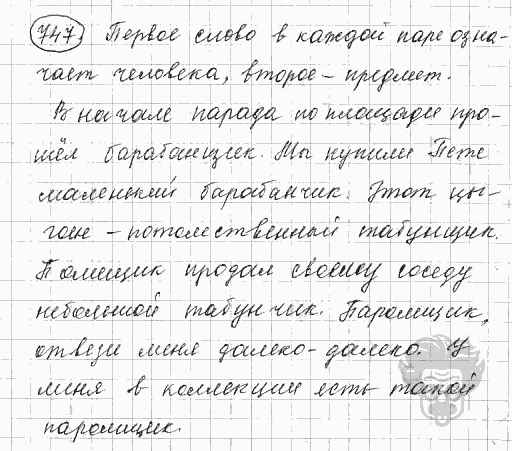 747. Первое слово в каждой паре озна-
чает человека, второе – предмет.
В начале парада по площади про-
шёл барабанщик. Мы купили Пете
маленький барабанчик. Этот цы-
ган – потомственный табунщик.
Помещик продал своему соседу
небольшой табунчик. Паромщик,
отвези меня далеко-далеко. У
меня в коллекции есть такой
паромщик.